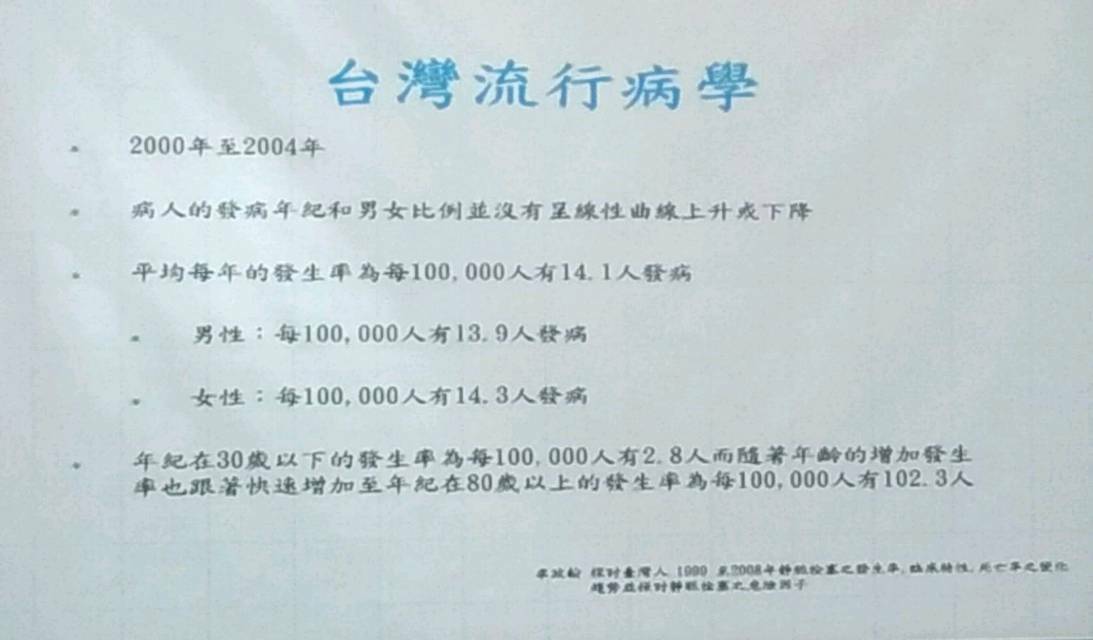 台灣流行病學
2000年至2004年
病人的發病年紀和男女比例並沒有呈線性曲線上升或下降
平均每年的發生率為每100,000人有14.1人發病
男性：每100,000人有13.9人發病
女性：每100,000人有14.3人發病
年紀在30歲以下的發生率為每100,000人有2.8人而隨著年齡的增加發生
率也跟著快速增加至年紀在80歲以上的發生率為每100,000人有102.3人
探討臺灣人 1999 至2008年靜脈栓塞之發生率,臨床特性,死亡率之變化
趨勢並探討靜脈栓塞之危險因子